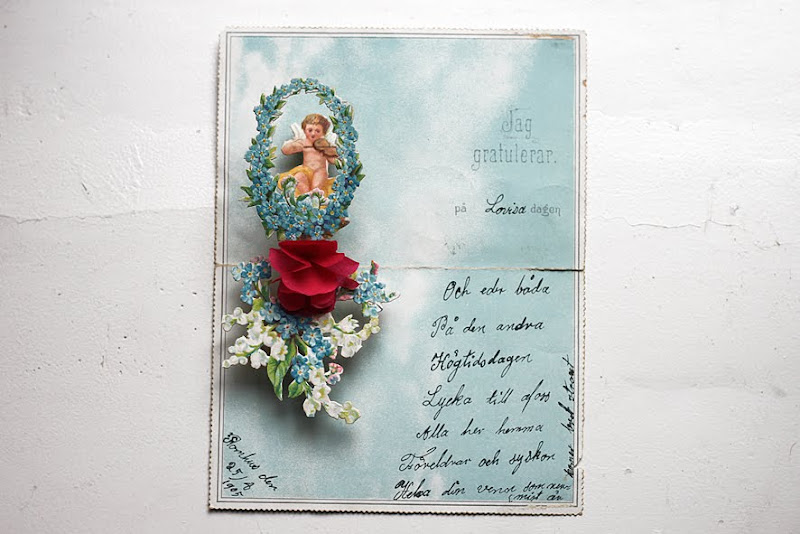 Jag
gratulerar.
på Lovisa dagen
Och eder båda
På den andra
Högtidsdagen
Lycka till ofoss
Alla her hemma
Föreldrar och syskon
Helsa din venn som nerr
mist än
den
25/8
1905